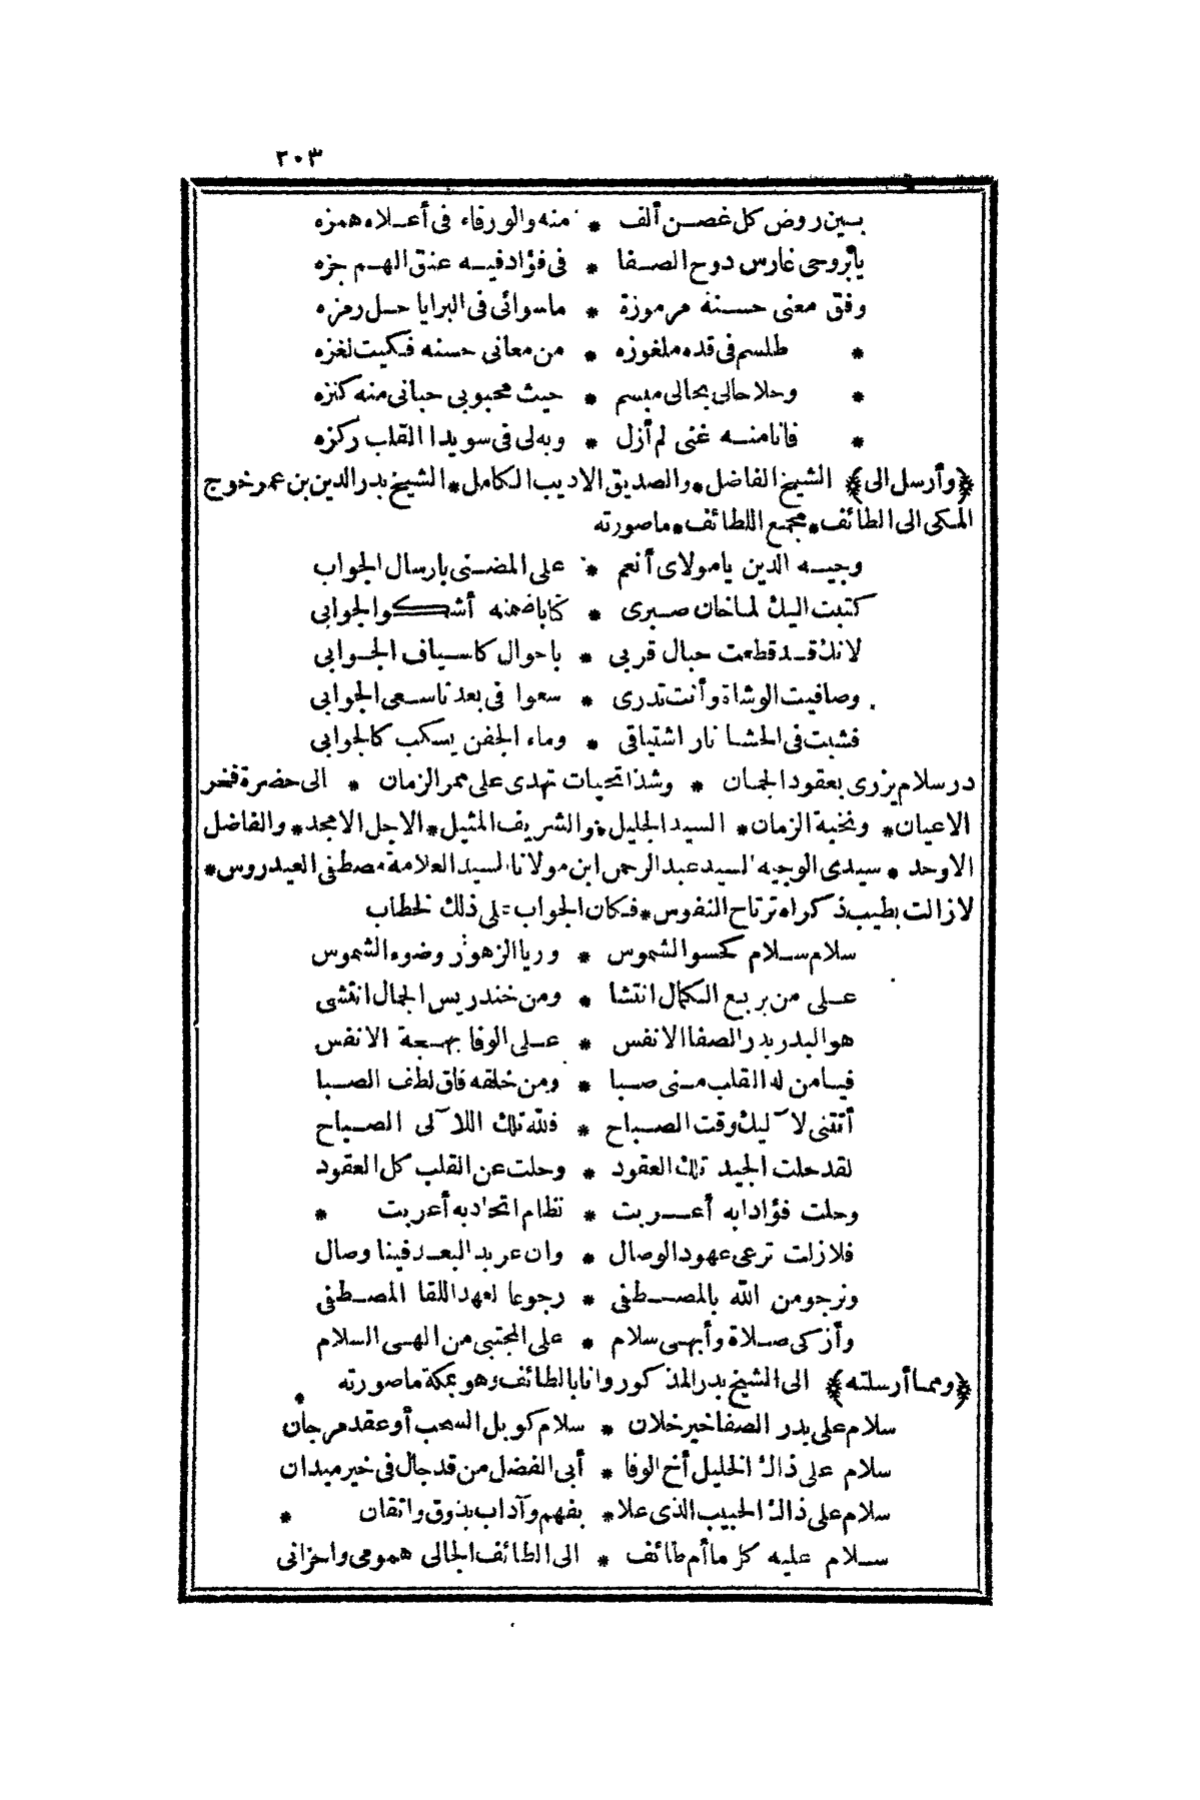 ٢٠٣
بين روض كل غصن ألف * منه والورقاء فى أعلاه همزه
يابروحى غارس دوح الصفا * فى فؤاد فيه عنق الهم جزه
وفق معنى حسنه مرموزة * ماسوائى فى البرايا حل رمزه
* طلسم فى قده ملغوزه * من معانى حسنه فكيت لغزه
* وحلا حالى بحالى مبسم * حيث محبوبى حبانى منه كنزه
* فانا منه غنى لم أزل * وبه لى فى سويدا القلب ركزه
﴿وأرسل الى﴾ الشيخ الفاضل * والصديق الاديب الكامل * الشيخ بدر الدين بن عمر خوج
المكى الى الطائف * مجمع اللطائف * ماصورته
وجيه الدين يامولاى أنعم * على المضنى بارسال الجواب
كتبت اليك لما خان صبرى * كتابا ضمنه أشكو الجوابى
لانك قد قطعت حبال قربى * باحوال كاسياف الجوابى
وصافيت الوشاة وأنت تدرى * سعوا فى بعدنا سعى الجوابى
فشبت فى الحشا نار اشتياقى * وماء الجفن يسكب كالجوابى
در سلام يزرى بعقود الجمان * وشذا تحيات تهدى على ممر الزمان * الى حضرة فخر
الاعيان * ونخبة الزمان * السيد الجليل * والشريف المثيل * الاجل الامجد * والفاضل
الاوحد * سيدى الوجيه السيد عبد الرحمن ابن مولانا السيد العلامة مصطفى العيدروس *
لازالت بطيب ذكراه ترتاح النفوس * فكان الجواب على ذلك الخطاب
سلام سلام كحسو الشموس * وريا الزهور وضوء الشموس
على من بربع الكمال انتشا * ومن خندريس الجمال انتشى
هو البدر بدر الصفا الانفس * على الوفا بهجة الانفس
فيا من له القلب منى صبا * ومن خلقه فاق لطف الصبا
أتتنى لآليك وقت الصباح * فلله تلك اللآلى الصباح
لقد حلت الجيد تلك العقود * وحلت عن القلب كل العقود
وحلت فؤادا به أعربت * نظام اتحاد به أعربت *
فلازلت ترعى عهود الوصال * وان عربد البعد فينا وصال
ونرجو من الله بالمصطفى * رجوعا لعهد اللقا المصطفى
وأزكى صلاة وأبهى سلام * على المجتبى من الهى السلام
﴿ومما أرسلته﴾ الى الشيخ بدر المذكور وانا بالطائف وهو بمكة ماصورته
سلام على بدر الصفا خير خلان * سلام كوبل السحب أو عقد مرجان
سلام على ذاك الخليل أخ الوفا * أبى الفضل من قد جال فى خير ميدان
سلام على ذاك الحبيب الذى علا * بفهم وآداب بذوق واتقان *
سلام عليه كل ما أم طائف * الى الطائف الجالى همومى واحزانى